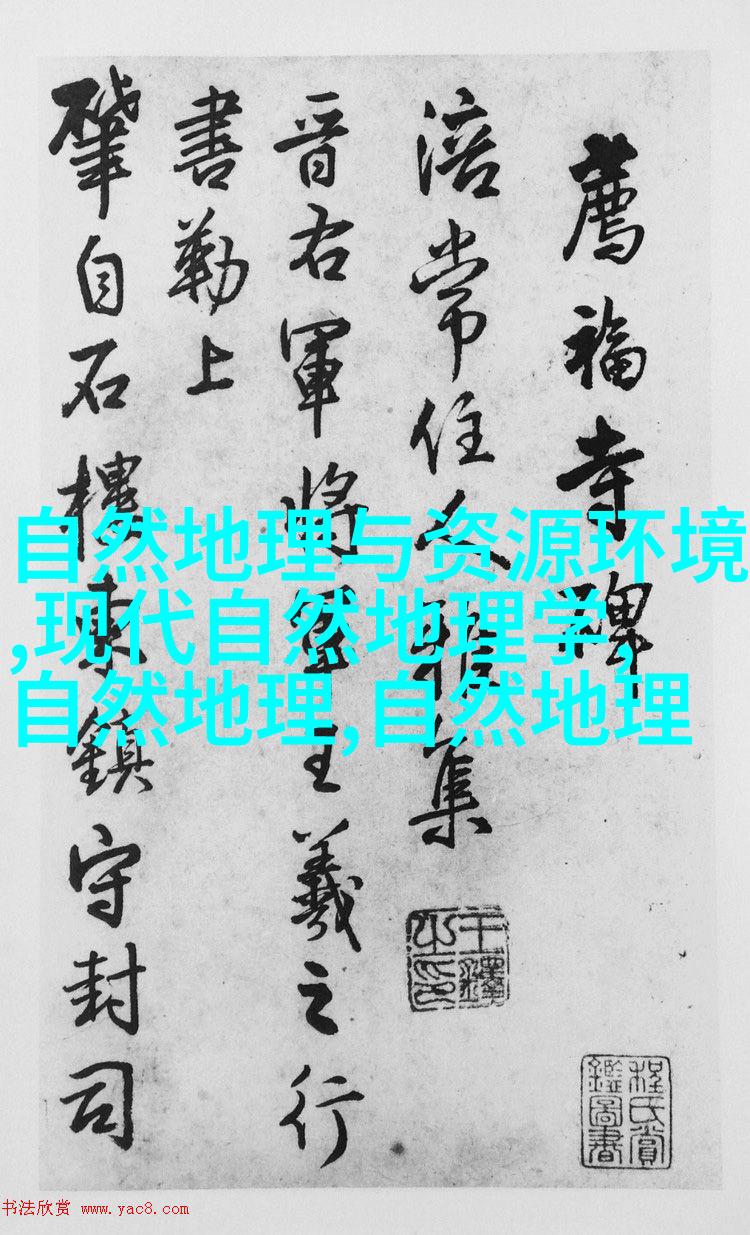 薦福寺碑
涪常住人集
晉右軍將軍王羲之行
書勒上
肇自石樓東鎮守封司
王鐸之印
程氏賞
鑑圖書
自然地理与资源环境
,现代自然地理学,
自然地理,自然地理
书法欣赏 www.yac8.com